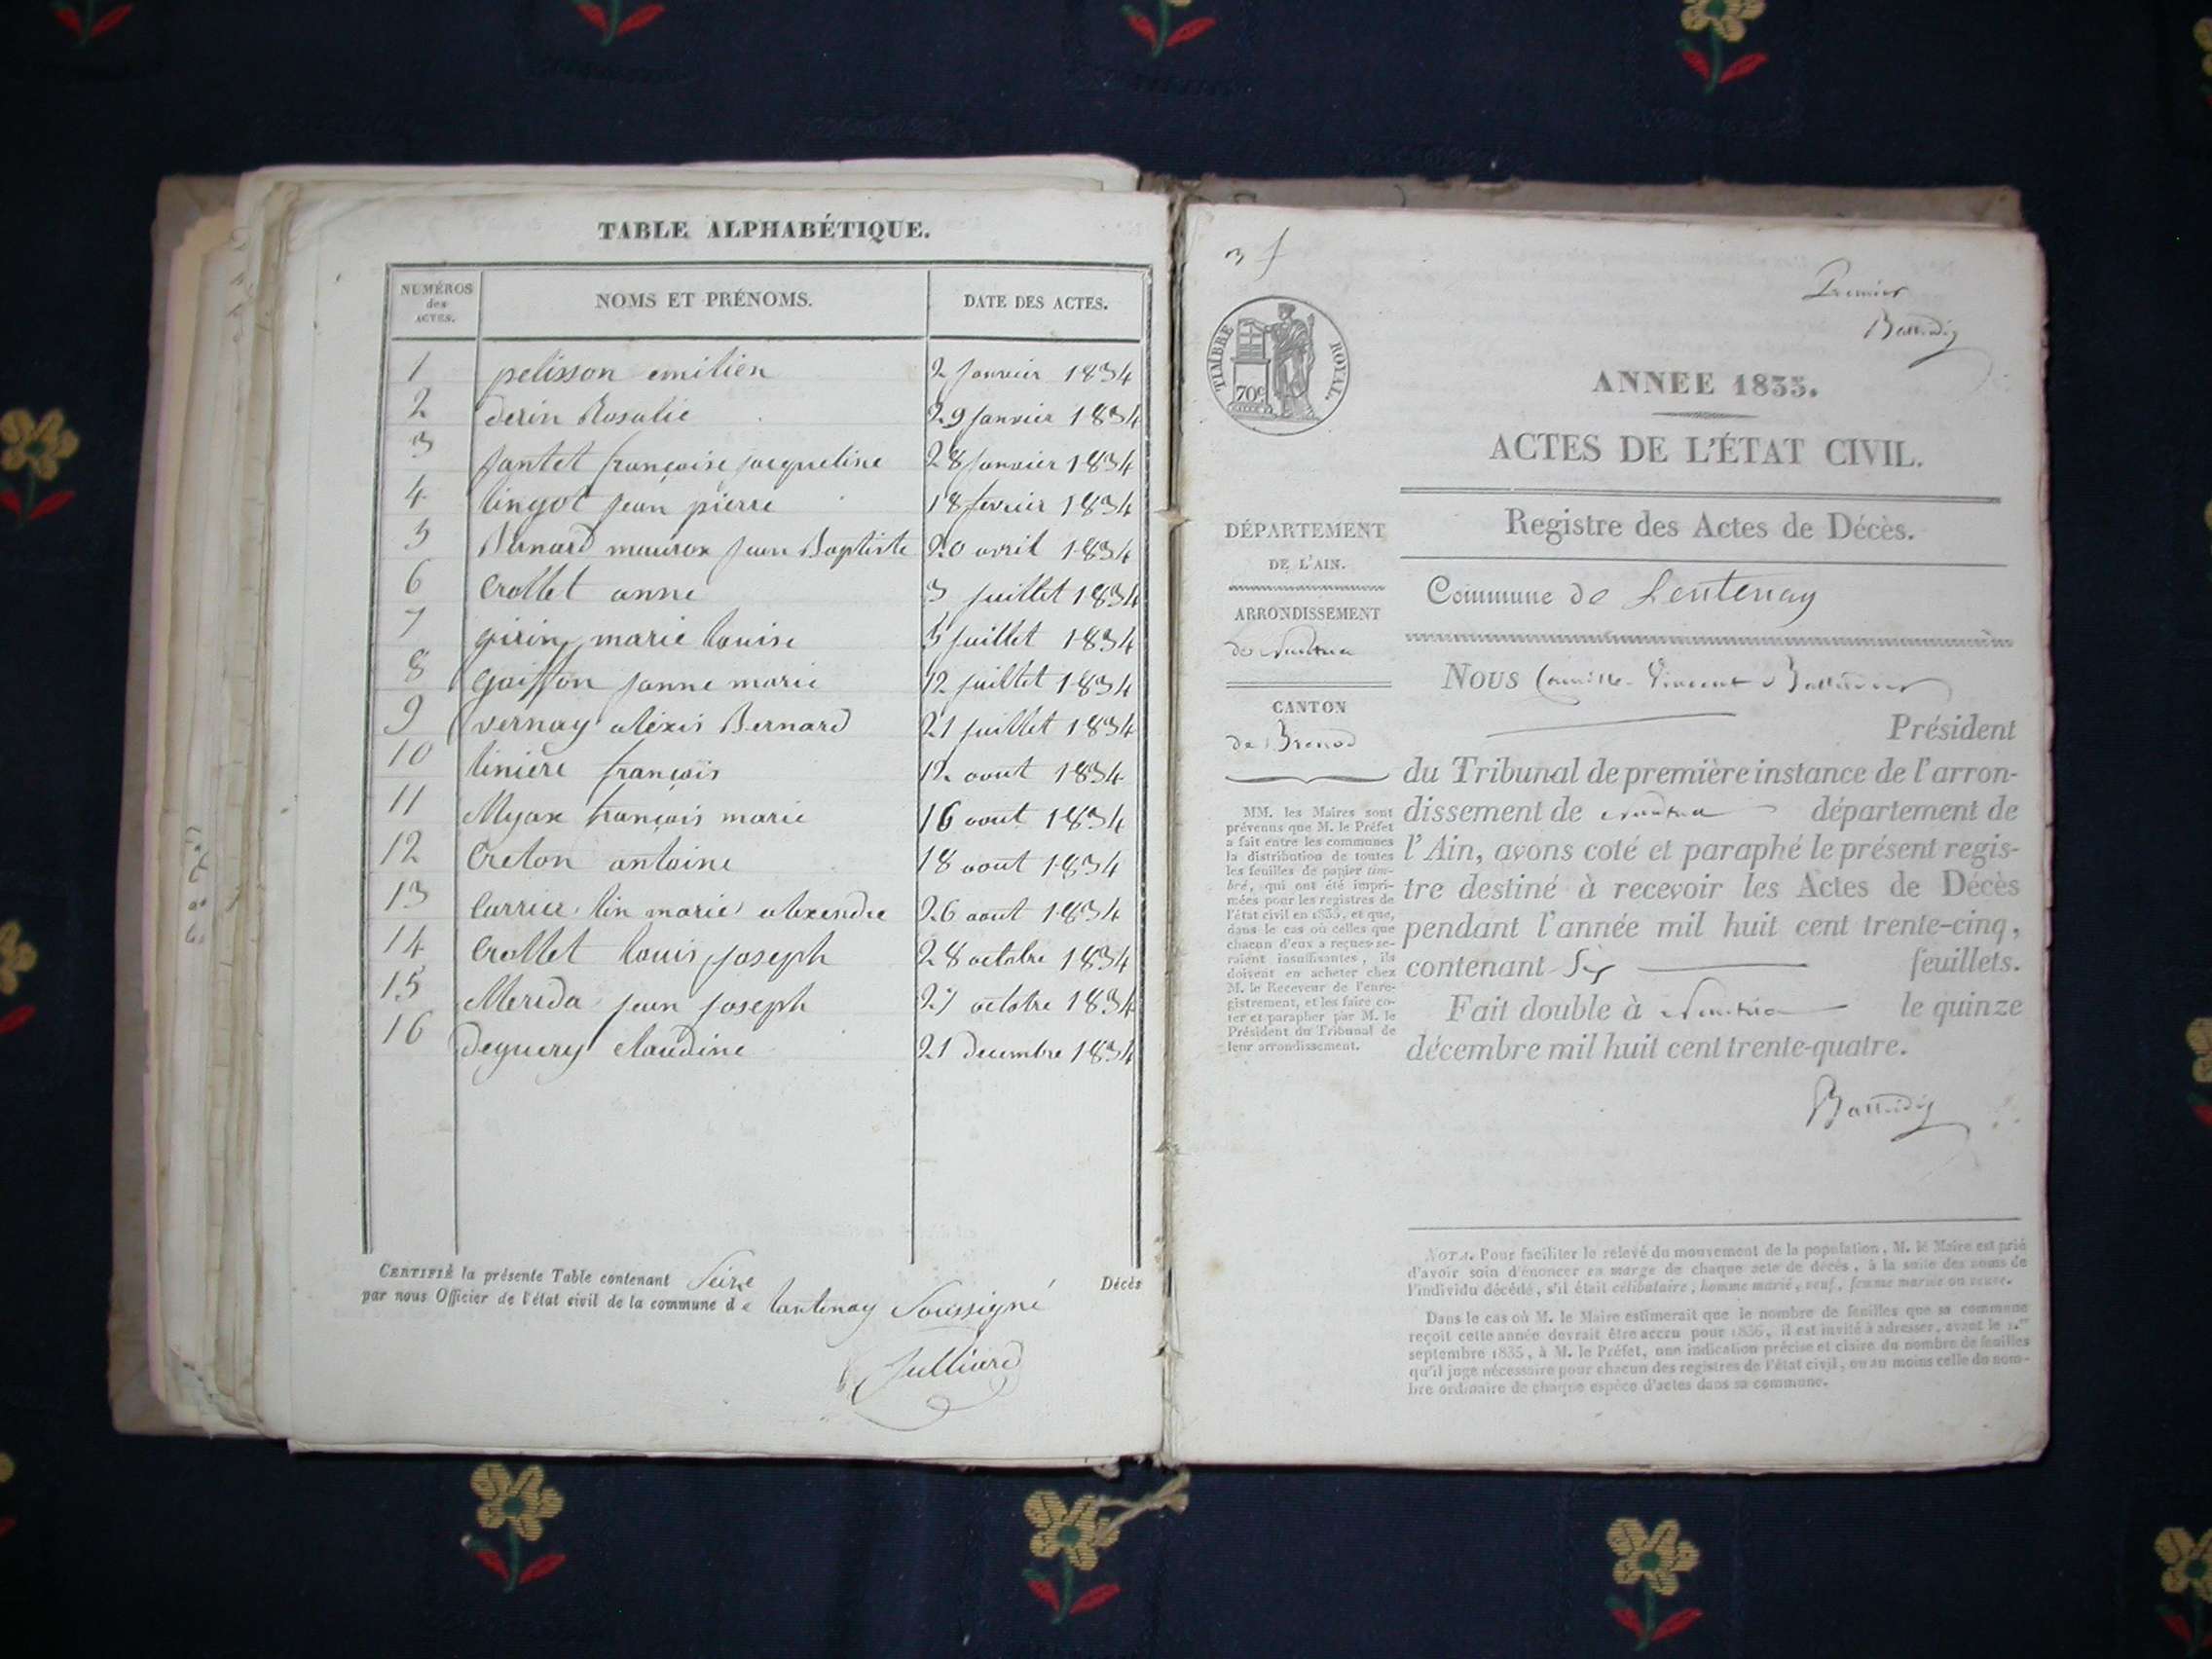 TABLE ALPHABÉTIQUE.
NUMÉROS des ACTES. NOMS ET PRÉNOMS. DATE DES ACTES.
1 pelisson emilien 2 Janvier 1834
2 derin Rosalie 29 Janvier 1834
3 Jantet françoise jacqueline 28 Janvier 1834
4 lingot Jean pierre 18 fevrier 1834
5 Bernard maurox Jean Baptiste 20 avril 1834
6 Crollet anne 3 Juillet 1834
7 girin marie louise 5 Juillet 1834
8 goiffon Janne marie 12 juillet 1834
9 vernay aléxis Bernard 21 juillet 1834
10 linière françois 12 aout 1834
11 Myax françois marie 16 aout 1834
12 Creton antoine 18 aout 1834
13 Carrier lin marie alexendre 26 aout 1834
14 Crollet louis joseph 28 octobre 1834
15 Merida jean joseph 27 octobre 1834
16 deguery claudine 21 decembre 1834
CERTIFIÉ la présente Table contenant Seize Décès
par nous Officier de l'état civil de la commune de lantenay Soussigné
Julliard
3 f
Premier
TIMBRE ROYAL.
70c
ANNEE 1835.
ACTES DE L'ÉTAT CIVIL.
Registre des Actes de Décès.
DÉPARTEMENT
DE L'AIN.
ARRONDISSEMENT
de Nantua
CANTON
de Brenod
MM. les Maires sont
prévenus que M. le Préfet
a fait entre les communes
la distribution de toutes
les feuilles de papier tim-
bré, qui ont été impri-
mées pour les registres de
l'état civil en 1835, et que,
dans le cas où celles que
chacun d'eux a reçues se-
raient insuffisantes, ils
doivent en acheter chez
M. le Receveur de l'enre-
gistrement, et les faire co-
ter et parapher par M. le
Président du Tribunal de
leur arrondissement.
Commune de Lentenay
NOUS Camille Vincent
Président
du Tribunal de première instance de l'arron-
dissement de Nantua département de
l'Ain, avons coté et paraphé le présent regis-
tre destiné à recevoir les Actes de Décès
pendant l'année mil huit cent trente-cinq,
contenant Six feuillets.
Fait double à Nantua le quinze
décembre mil huit cent trente-quatre.
NOTA. Pour faciliter le relevé du mouvement de la population, M. le Maire est prié
d'avoir soin d'énoncer en marge de chaque acte de décès, à la suite des noms de
l'individu décédé, s'il était célibataire, homme marié, veuf, femme mariée ou veuve.
Dans le cas où M. le Maire estimerait que le nombre de feuilles que sa commune
reçoit cette année devrait être accru pour 1836, il est invité à adresser, avant le 1.er
septembre 1835, à M. le Préfet, une indication précise et claire du nombre de feuilles
qu'il juge nécessaire pour chacun des registres de l'état civil, ou au moins celle du nom-
bre ordinaire de chaque espèce d'actes dans sa commune.